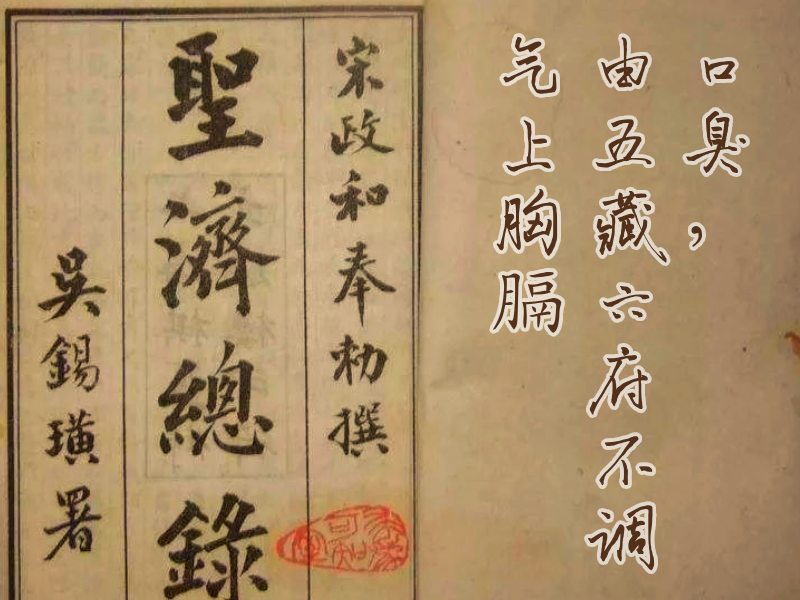 口臭，
由五藏六府不调
气上胸膈
宋政和奉勅撰
聖濟總錄
吳錫璜署